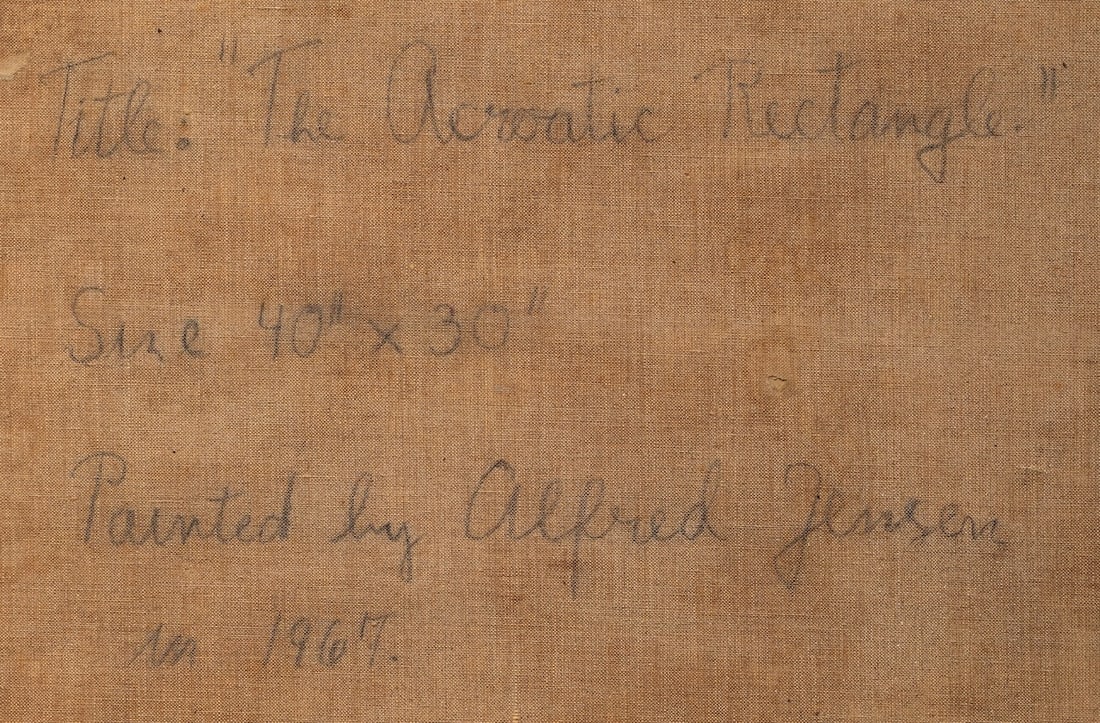 Title: "The Acroatic Rectangle."
Size 40" x 30"
Painted by Alfred Jensen
in 1967.